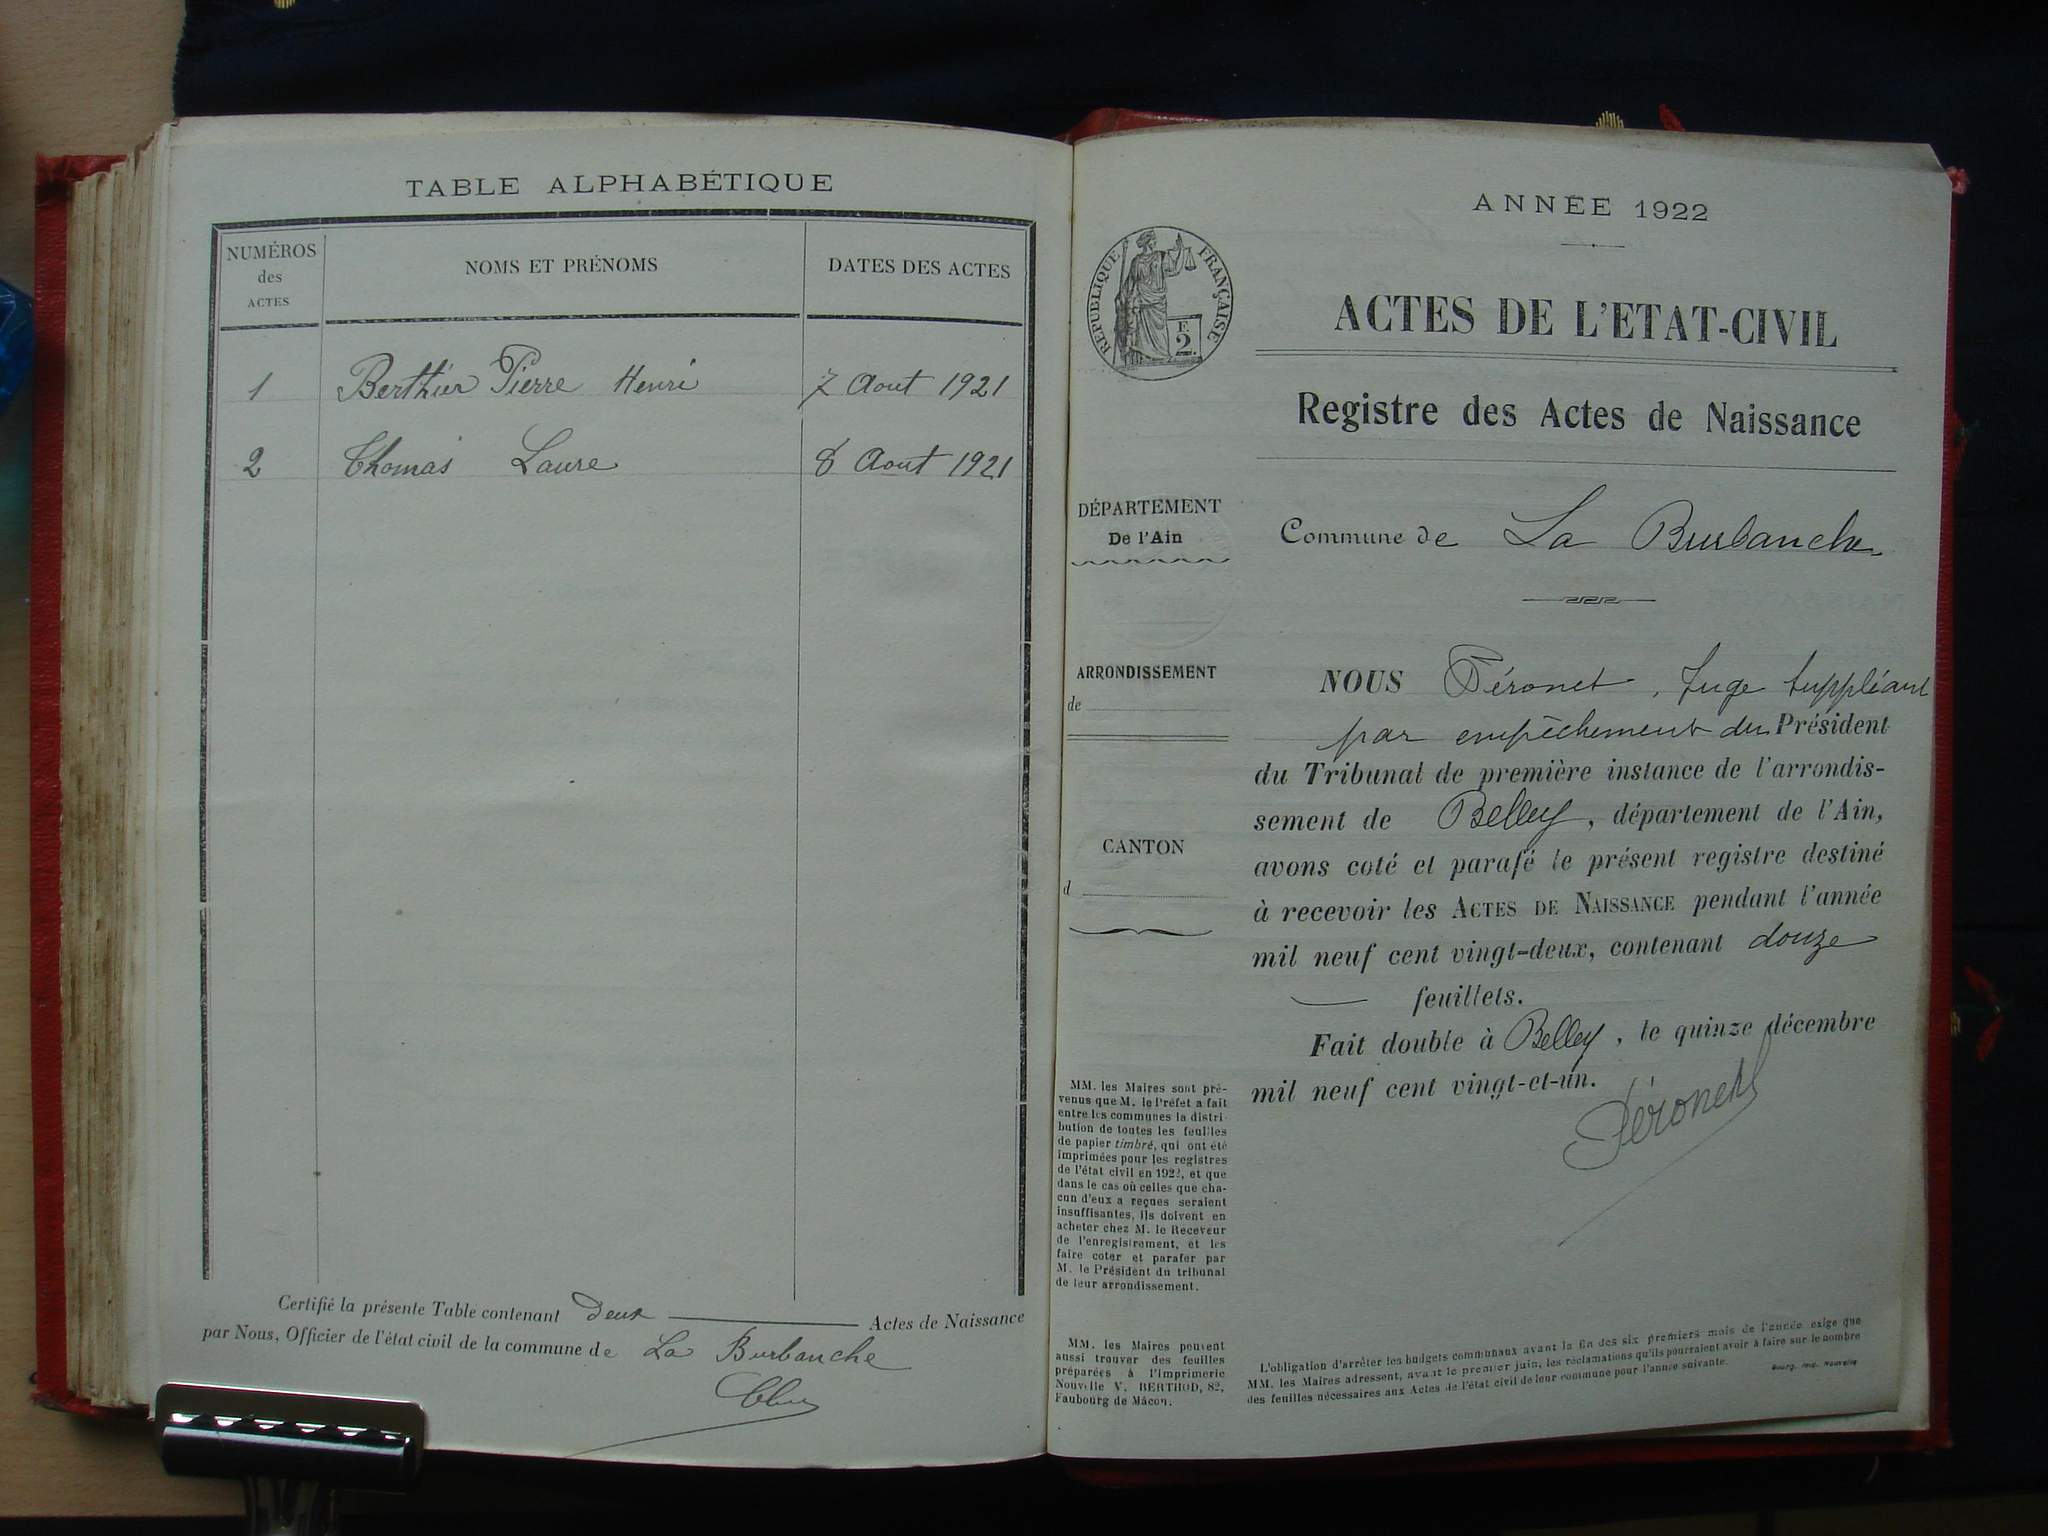 TABLE ALPHABÉTIQUE
NUMÉROS
des
ACTES
NOMS ET PRÉNOMS
DATES DES ACTES
1 Berthier Pierre Henri 7 Aout 1921
2 Thomas Laure 8 Aout 1921
Certifié la présente Table contenant deux Actes de Naissance
par Nous, Officier de l'état civil de la commune de La Burbanche
ANNÉE 1922
RÉPUBLIQUE FRANÇAISE
2 F.
ACTES DE L'ETAT-CIVIL
Registre des Actes de Naissance
DÉPARTEMENT
De l'Ain
Commune de La Burbanche
ARRONDISSEMENT
de
CANTON
d
NOUS Péronet, Juge suppléant
par empêchement du Président
du Tribunal de première instance de l'arrondis-
sement de Belley, département de l'Ain,
avons coté et parafé le présent registre destiné
à recevoir les ACTES DE NAISSANCE pendant l'année
mil neuf cent vingt-deux, contenant douze
feuillets.
Fait double à Belley, le quinze décembre
mil neuf cent vingt-et-un.
Péronet
MM. les Maires sont pré-
venus que M. le Préfet a fait
entre les communes la distri-
bution de toutes les feuilles
de papier timbré, qui ont été
imprimées pour les registres
de l'état civil en 1922, et que
dans le cas où celles que cha-
cun d'eux a reçues seraient
insuffisantes, ils doivent en
acheter chez M. le Receveur
de l'enregistrement, et les
faire coter et parafer par
M. le Président du tribunal
de leur arrondissement.
MM. les Maires peuvent
aussi trouver des feuilles
préparées à l'Imprimerie
Nouvelle V. BERTHOD, 82,
Faubourg de Mâcon.
L'obligation d'arrêter les budgets communaux avant la fin des six premiers mois de l'année exige que
MM. les Maires adressent, avant le premier juin, les réclamations qu'ils pourraient avoir à faire sur le nombre
des feuilles nécessaires aux Actes de l'état civil de leur commune pour l'année suivante.
Bourg, imp. Nouvelle